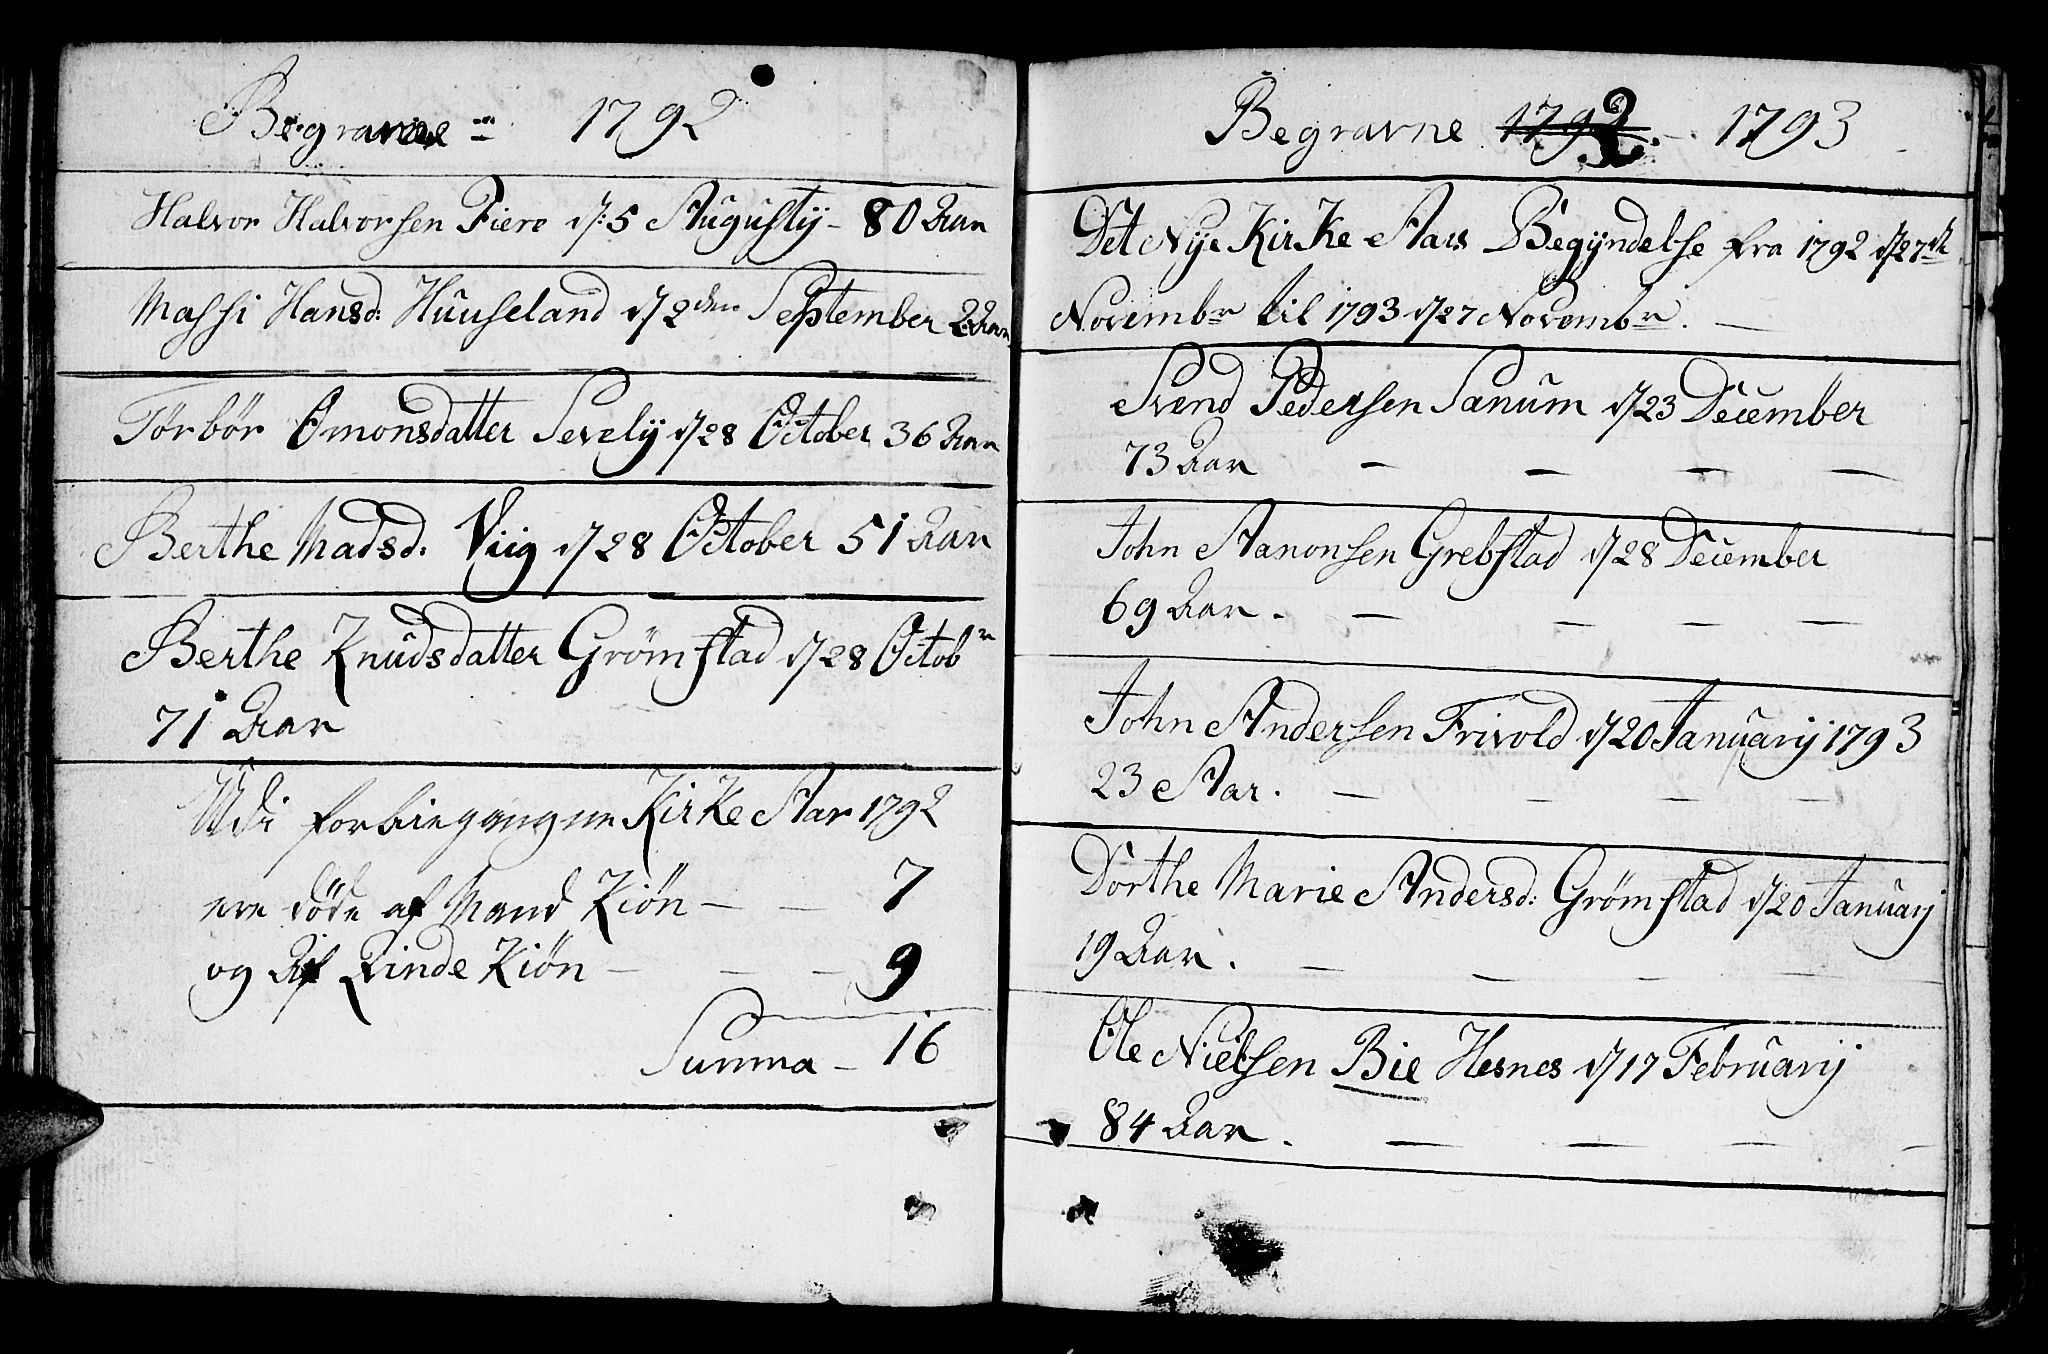 Begravne = 1792
Halvor Halvorsen Fiere d: 5 Augustij - 80 Aar
Massi Hansd: Huuseland d/ 2den September 2 Aar
Törbör Omonsdatter Sevelij d/ 28 October 36 Aar
Berthe Madsd. Viig d/ 28 October 51 Aar
Berthe Knudsdatter Grömstad d/ 28 Octobr
71 Aar
Udi forbiegangne Kirke Aar 1792
ere döde af Mand Kiön - - 7
og Af Qvinde Kiön - - - 9
Summa - 16
Begravne 1792. - 1793
Det Nye Kirke Aars Begyndelse fra 1792 d/ 27de
Novembr til 1793 d/ 27 Novembr. -
Svend Pedersen Sanum d/ 23 December
73 Aar - - - -
John Aanonsen Grebstad d/ 28 December
69 Aar. - - - -
John Andersen Frivold d/ 20 Januarij 1793
23 Aar. - - - -
Dorthe Marie Andersd: Grömstad d/ 20 Januarij
19 Aar. - - - -
Ole Nielsen Bie Hesnes d/ 17 Februarij
84 Aar. - - - -